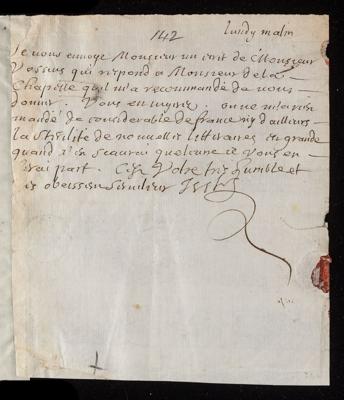 142
lundy matin
Je vous envoye Monsieur un écrit de Monsieur
Vossius qui respond a Monsieur de la
Chapelle quil m'a recommandé de vous
donner. Vous
mandé de considerable de france ny d'ailleurs
la sterilité de nouvelles litteraires est grande
quand j'en scaurai quelcune je vous en
ferai part. Votre tres humble et
tres obeissan serviteur